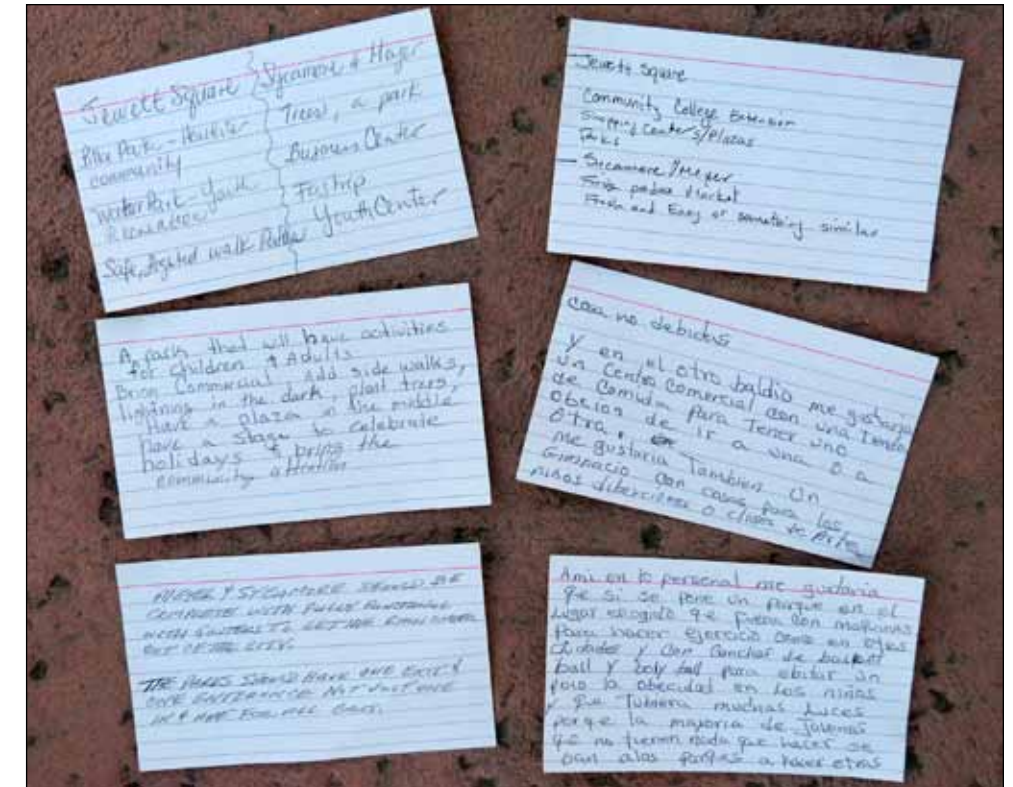 Jewett Square
Bike Park - Healthier
community
Water Park - Youth
Recreation
Safe, lighted walk Paths
Sycamore & Meyer
Trees, a park
Business Center
Fastrip
Youth Center
Jewett Square
Community College Extension
Shopping Centers/Plazas
Parks
Sycamore/Meyer
Market
Fresh and Easy or something similar
A park that will have activities
for children & Adults
Bring Commercial Add side walks,
lightning in the dark, plant trees,
Have a plaza in the middle
have a stage to celebrate
holidays & bring the
community attention
cosas no debidas
y en el otro baldio me gustaria
un Centro Comercial con una tienda
de Comida para Tener uno
de ir a una o a
otra.
me gustaria Tambien Un
Gimnacio con cosas para los
niños diberciones o clases de Arte
MEYER & SYCAMORE SHOULD BE
COMPLETE WITH FULLY FUNCTIONAL
GUTTERS TO LET THE RAIN
OUT OF THE CITY.
THE PARKS SHOULD HAVE ONE EXIT &
ONE ENTERANCE NOT JUST ONE
FOR ALL CARS.
Ami en lo personal me gustaria
qe si se pone un parque en el
lugar escogido qe fuera con maquinas
para hacer ejercicio como en otras
ciudades y con canchas de
ball y boly ball para ebitar un
poco la obecidad en los niños
y que Tubiera muchas Luces
porqe la mayoria de Jovenes
qe no tienen nada que hacer se
ban alos parqes a hacer otras